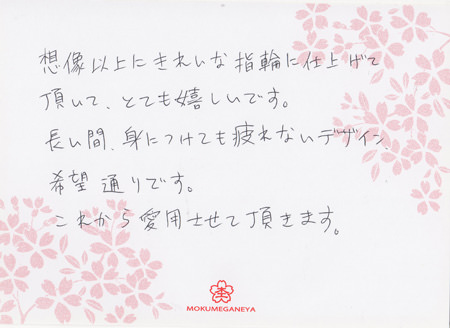 想像以上にきれいな指輪に仕上げて
頂いて、とても嬉しいです。
長い間、身につけても疲れないデザイン、
希望通りです。
これから愛用させて頂きます。
MOKUMEGANEYA